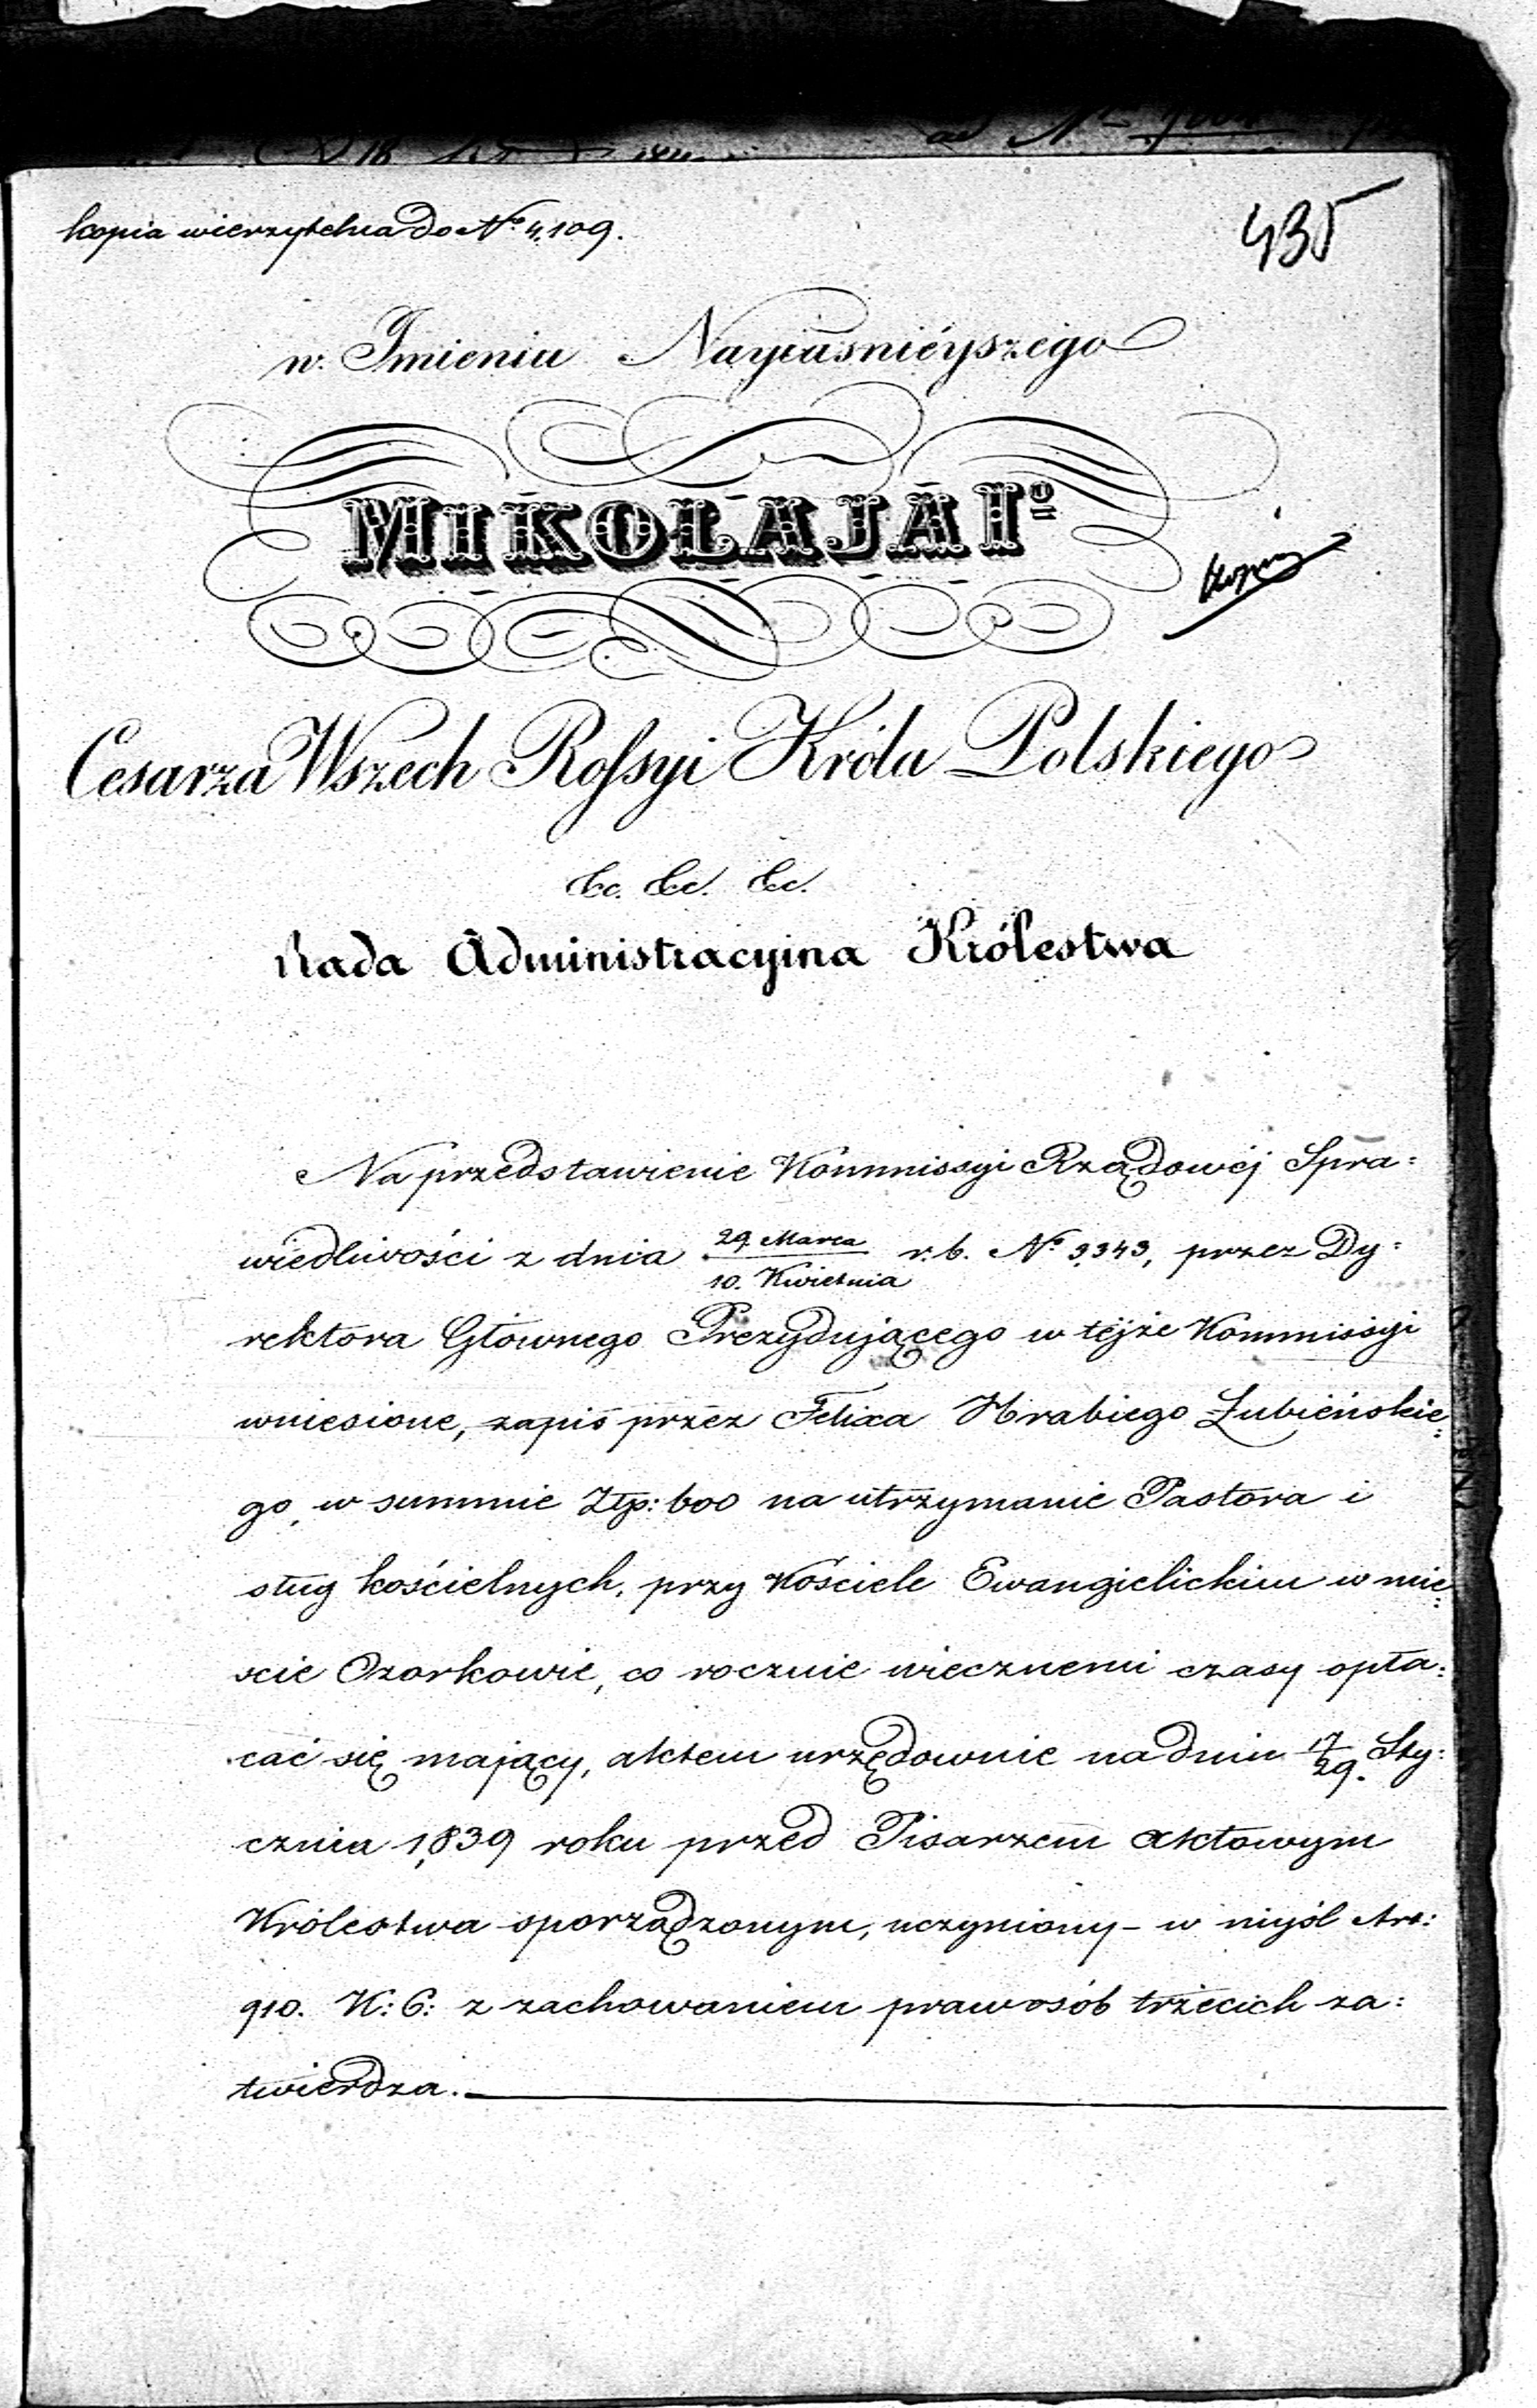 kopia wierzytelna do Nº 4,109.
435
w Imieniu Nayiaśnieyszego
MIKOŁAJA Iº
Cesarza Wszech Rossyi Króla Polskiego
&c. &c. &c.
Rada Administracyina Królestwa
Na przedstawienie Kommissyi Rządowéj Spra=
wiedliwości z dnia 29 Marca / 10. Kwietnia r. b. Nº 3343, przez Dy=
rektora Głownego Prezydującego w téjże Kommissyi
wniesione, zapis przez Felixa Hrabiego Łubieńskie=
go, w summie Złp: 600 na utrzymanie Pastora i
sług kościelnych, przy Kościele Ewangielickim w mie=
scie Ozorkowie, co rocznie wiecznemi czasy opła=
cać się mający, aktem urzędownie na dniu 17/29. Sty=
cznia 1,839 roku przed Pisarzem Aktowym
Królestwa sporządzonym, uczyniony – w myśl Art:
910. K: C: z zachowaniem praw osób trzecich za=
twierdza.